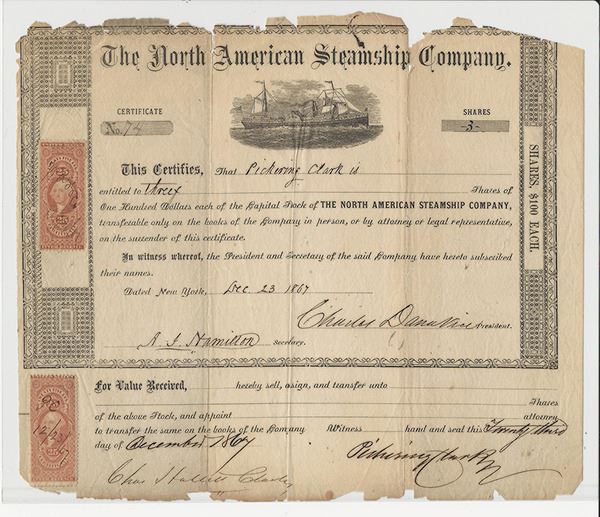 The North American Steamship Company.
CERTIFICATE
No. 74
SHARES
-3-
This Certifies, That Pickering Clark is
entitled to three Shares of
One Hundred Dollars each of the Capital Stock of THE NORTH AMERICAN STEAMSHIP COMPANY,
transferable only on the books of the Company in person, or by attorney or legal representative,
on the surrender of this certificate.
In witness whereof, the President and Secretary of the said Company have hereto subscribed
their names.
Dated New York, Dec 23 1867
Charles Dana President.
A. J. Hamilton Secretary.
SHARES, $100 EACH.
For Value Received, hereby sell, assign, and transfer unto
Shares
of the above Stock, and appoint attorney
to transfer the same on the books of the Company Witness hand and seal this Twenty third
day of December 1867
Pickering Clark
Chas Hallett
25
12/23
25